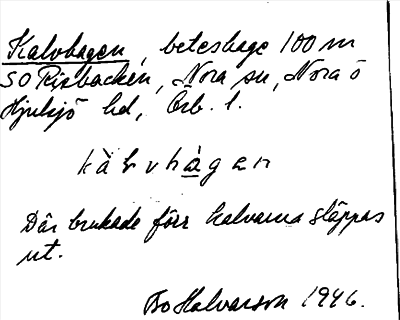 Kalvhagen, beteshage 100 m
SO Risbacken, Nora sn, Nora o
Hjulsjö hd, Örb. l.
kàlvhàgen
Där brukade förr kalvarna släppas
ut.
Bo Halvarson 1946.